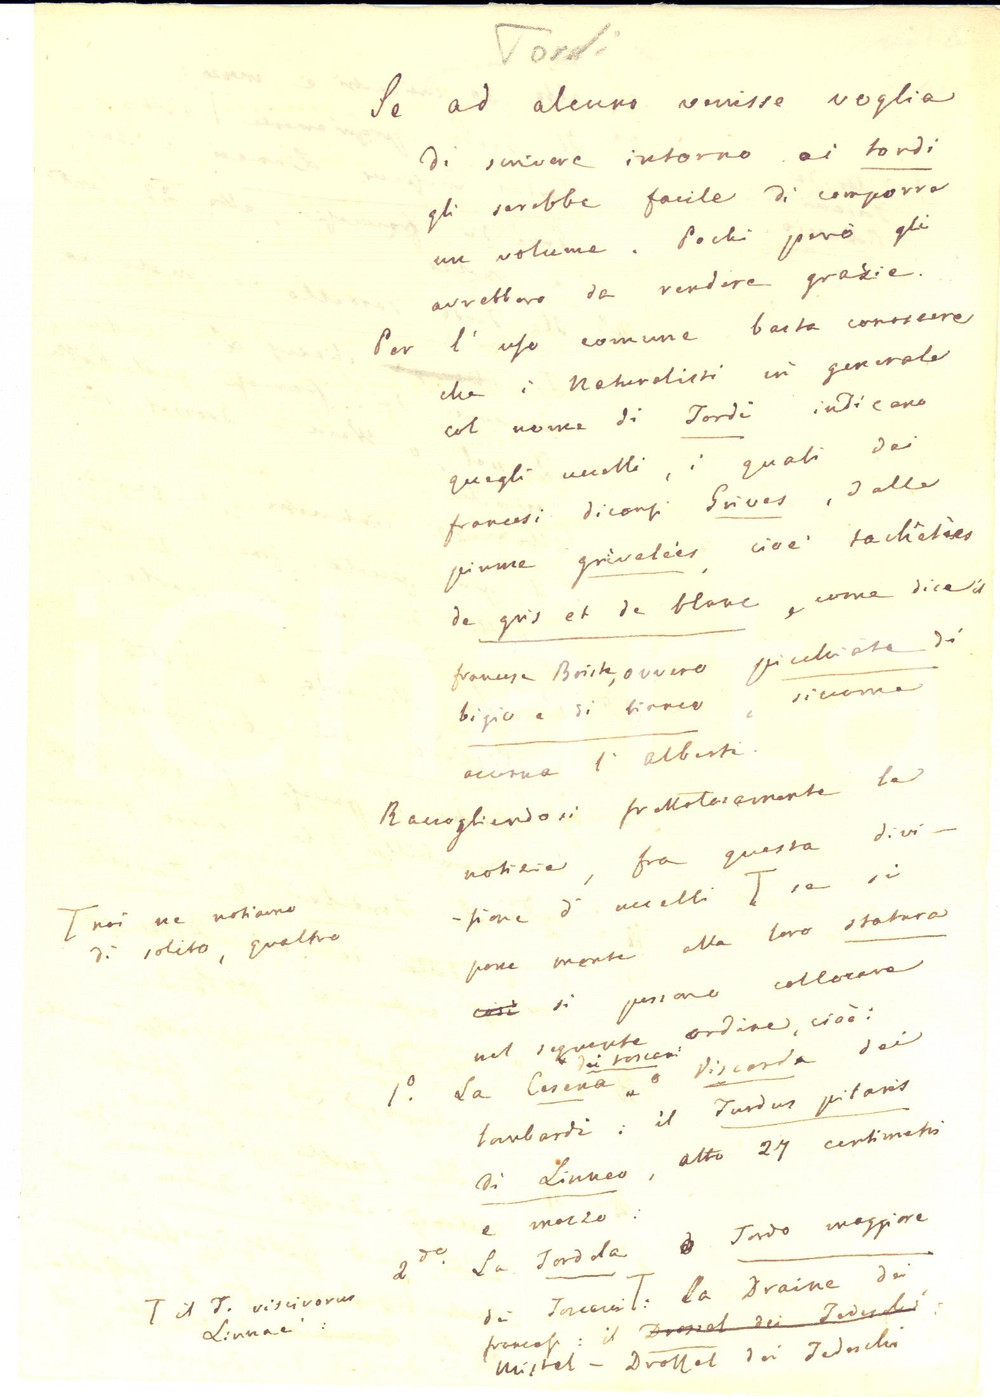 Tordi
Se ad alcuno venisse voglia
di scrivere intorno ai tordi
gli sarebbe facile di comporre
un volume. Pochi però gli
avrebbero da rendere grazie.
Per l'uso comune basta conoscere
che i Naturalisti in generale
col nome di Tordi indicano
quegli uccelli, i quali dai
francesi diconsi Grives, dalle
piume grivelées, cioè tachetées
de gris et de blanc, come dice il
francese Boiste, ovvero picchiate di
bigio e di bianco, siccome
accenna l'Alberti.
Raccogliendosi frettolosamente le
notizie, fra questa divi-
-sione d'uccelli T se si
T noi ne notiamo
di solito, quattro
pone mente alla loro statura
così si possono collocare
nel seguente ordine, cioè:
dei toscani
1º. La Cesena o Viscarda dei
lombardi: il Turdus pilaris
di Linneo, alto 27 centimetri
e mezzo:
2do. La Tordela o Tordo maggiore
dei Toscani T: la Draine dei
T il T. viscivorus
Linnaei:
francesi: il Drossel dei Tedeschi:
Mistel-Drossel dei Tedeschi